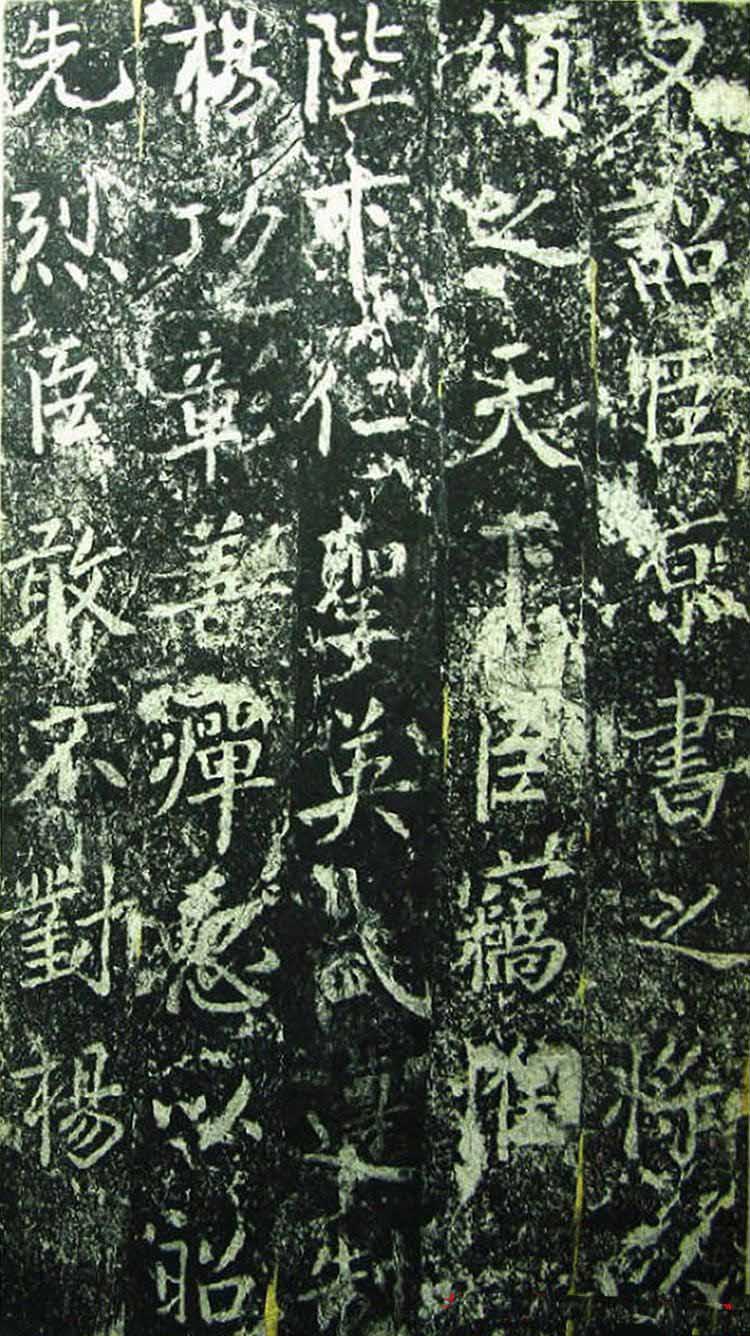 又詔臣京書之將以
頒之天下臣竊惟
陛下仁聖英武遵制
揚功彰善癉惡以昭
先烈臣敢不對揚